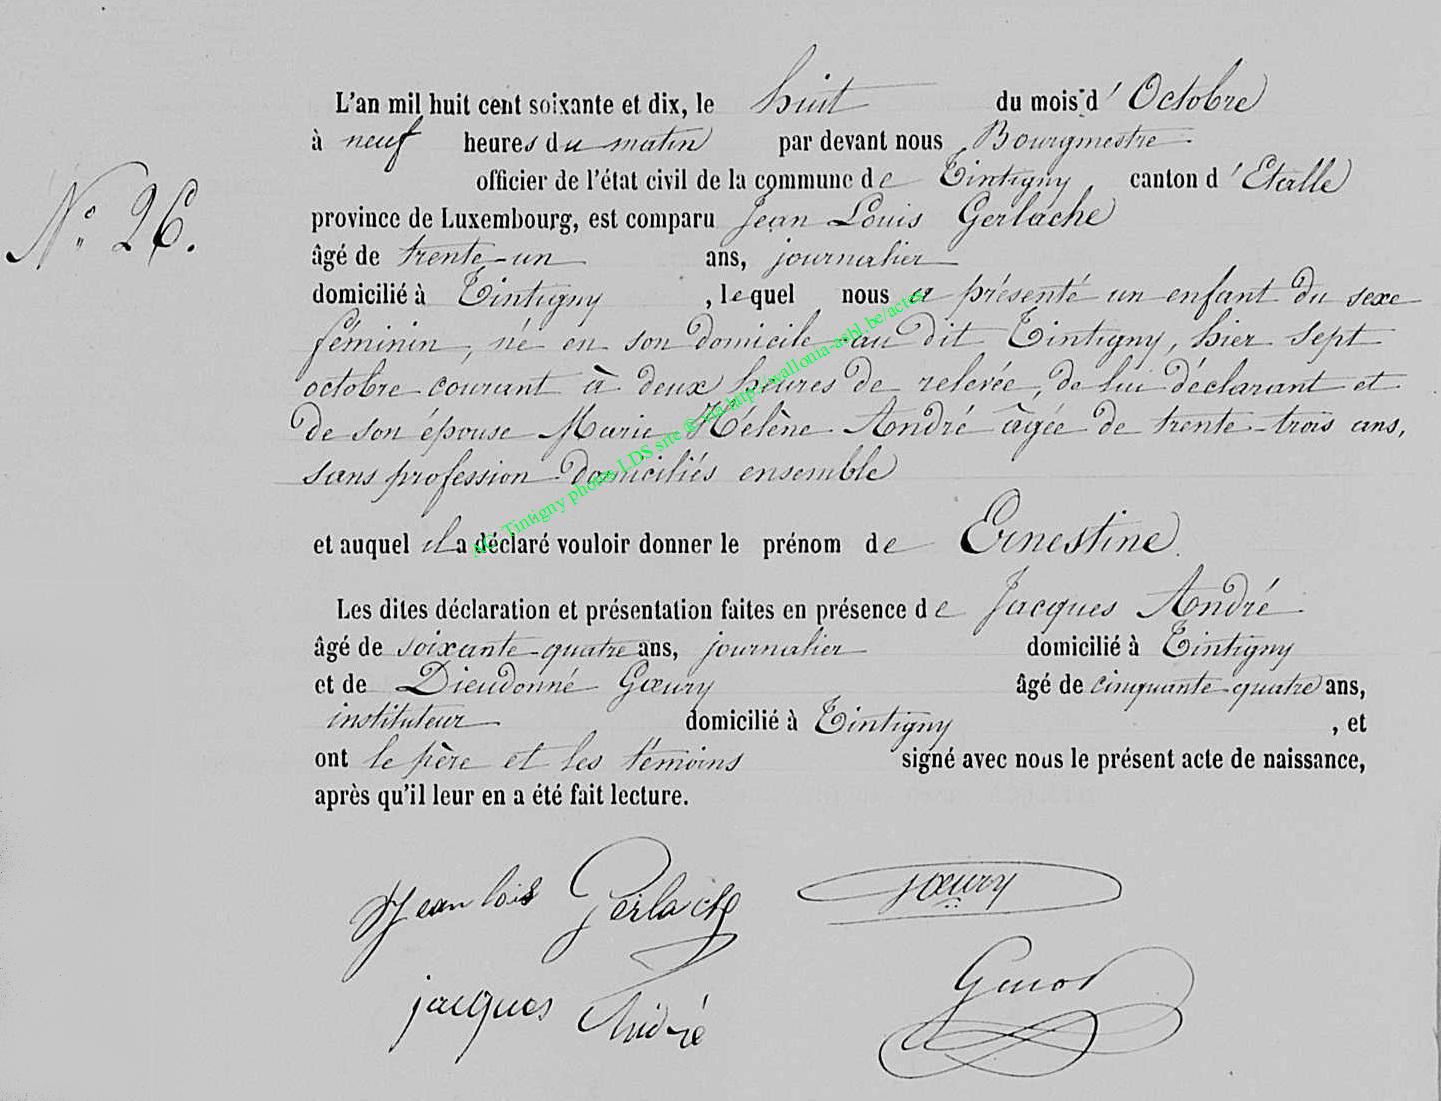 L'an mil huit cent soixante et dix, le huit du mois d' Octobre
à neuf heures du matin par devant nous Bourgmestre
officier de l'état civil de la commune de Tintigny canton d' Etalle
N° 26.
province de Luxembourg, est comparu Jean Louis Gerlache
âgé de trente-un ans, journalier
domicilié à Tintigny , lequel nous a présenté un enfant du sexe
féminin, né en son domicile au dit Tintigny, hier sept
octobre courant à deux heures de relevée, de lui déclarant et
de son épouse Marie Hélène André âgée de trente-trois ans,
sans profession domiciliés ensemble
et auquel il a déclaré vouloir donner le prénom de Ernestine.
Les dites déclaration et présentation faites en présence de Jacques André
âgé de soixante-quatre ans, journalier domicilié à Tintigny
et de Dieudonné Gœury âgé de cinquante-quatre ans,
instituteur domicilié à Tintigny , et
ont le père et les témoins signé avec nous le présent acte de naissance,
après qu'il leur en a été fait lecture.
Jean lois Gerlache
gœury
jacques André
AC Tintigny photos LDS site @ via http://wallonia-asbl.be/actes